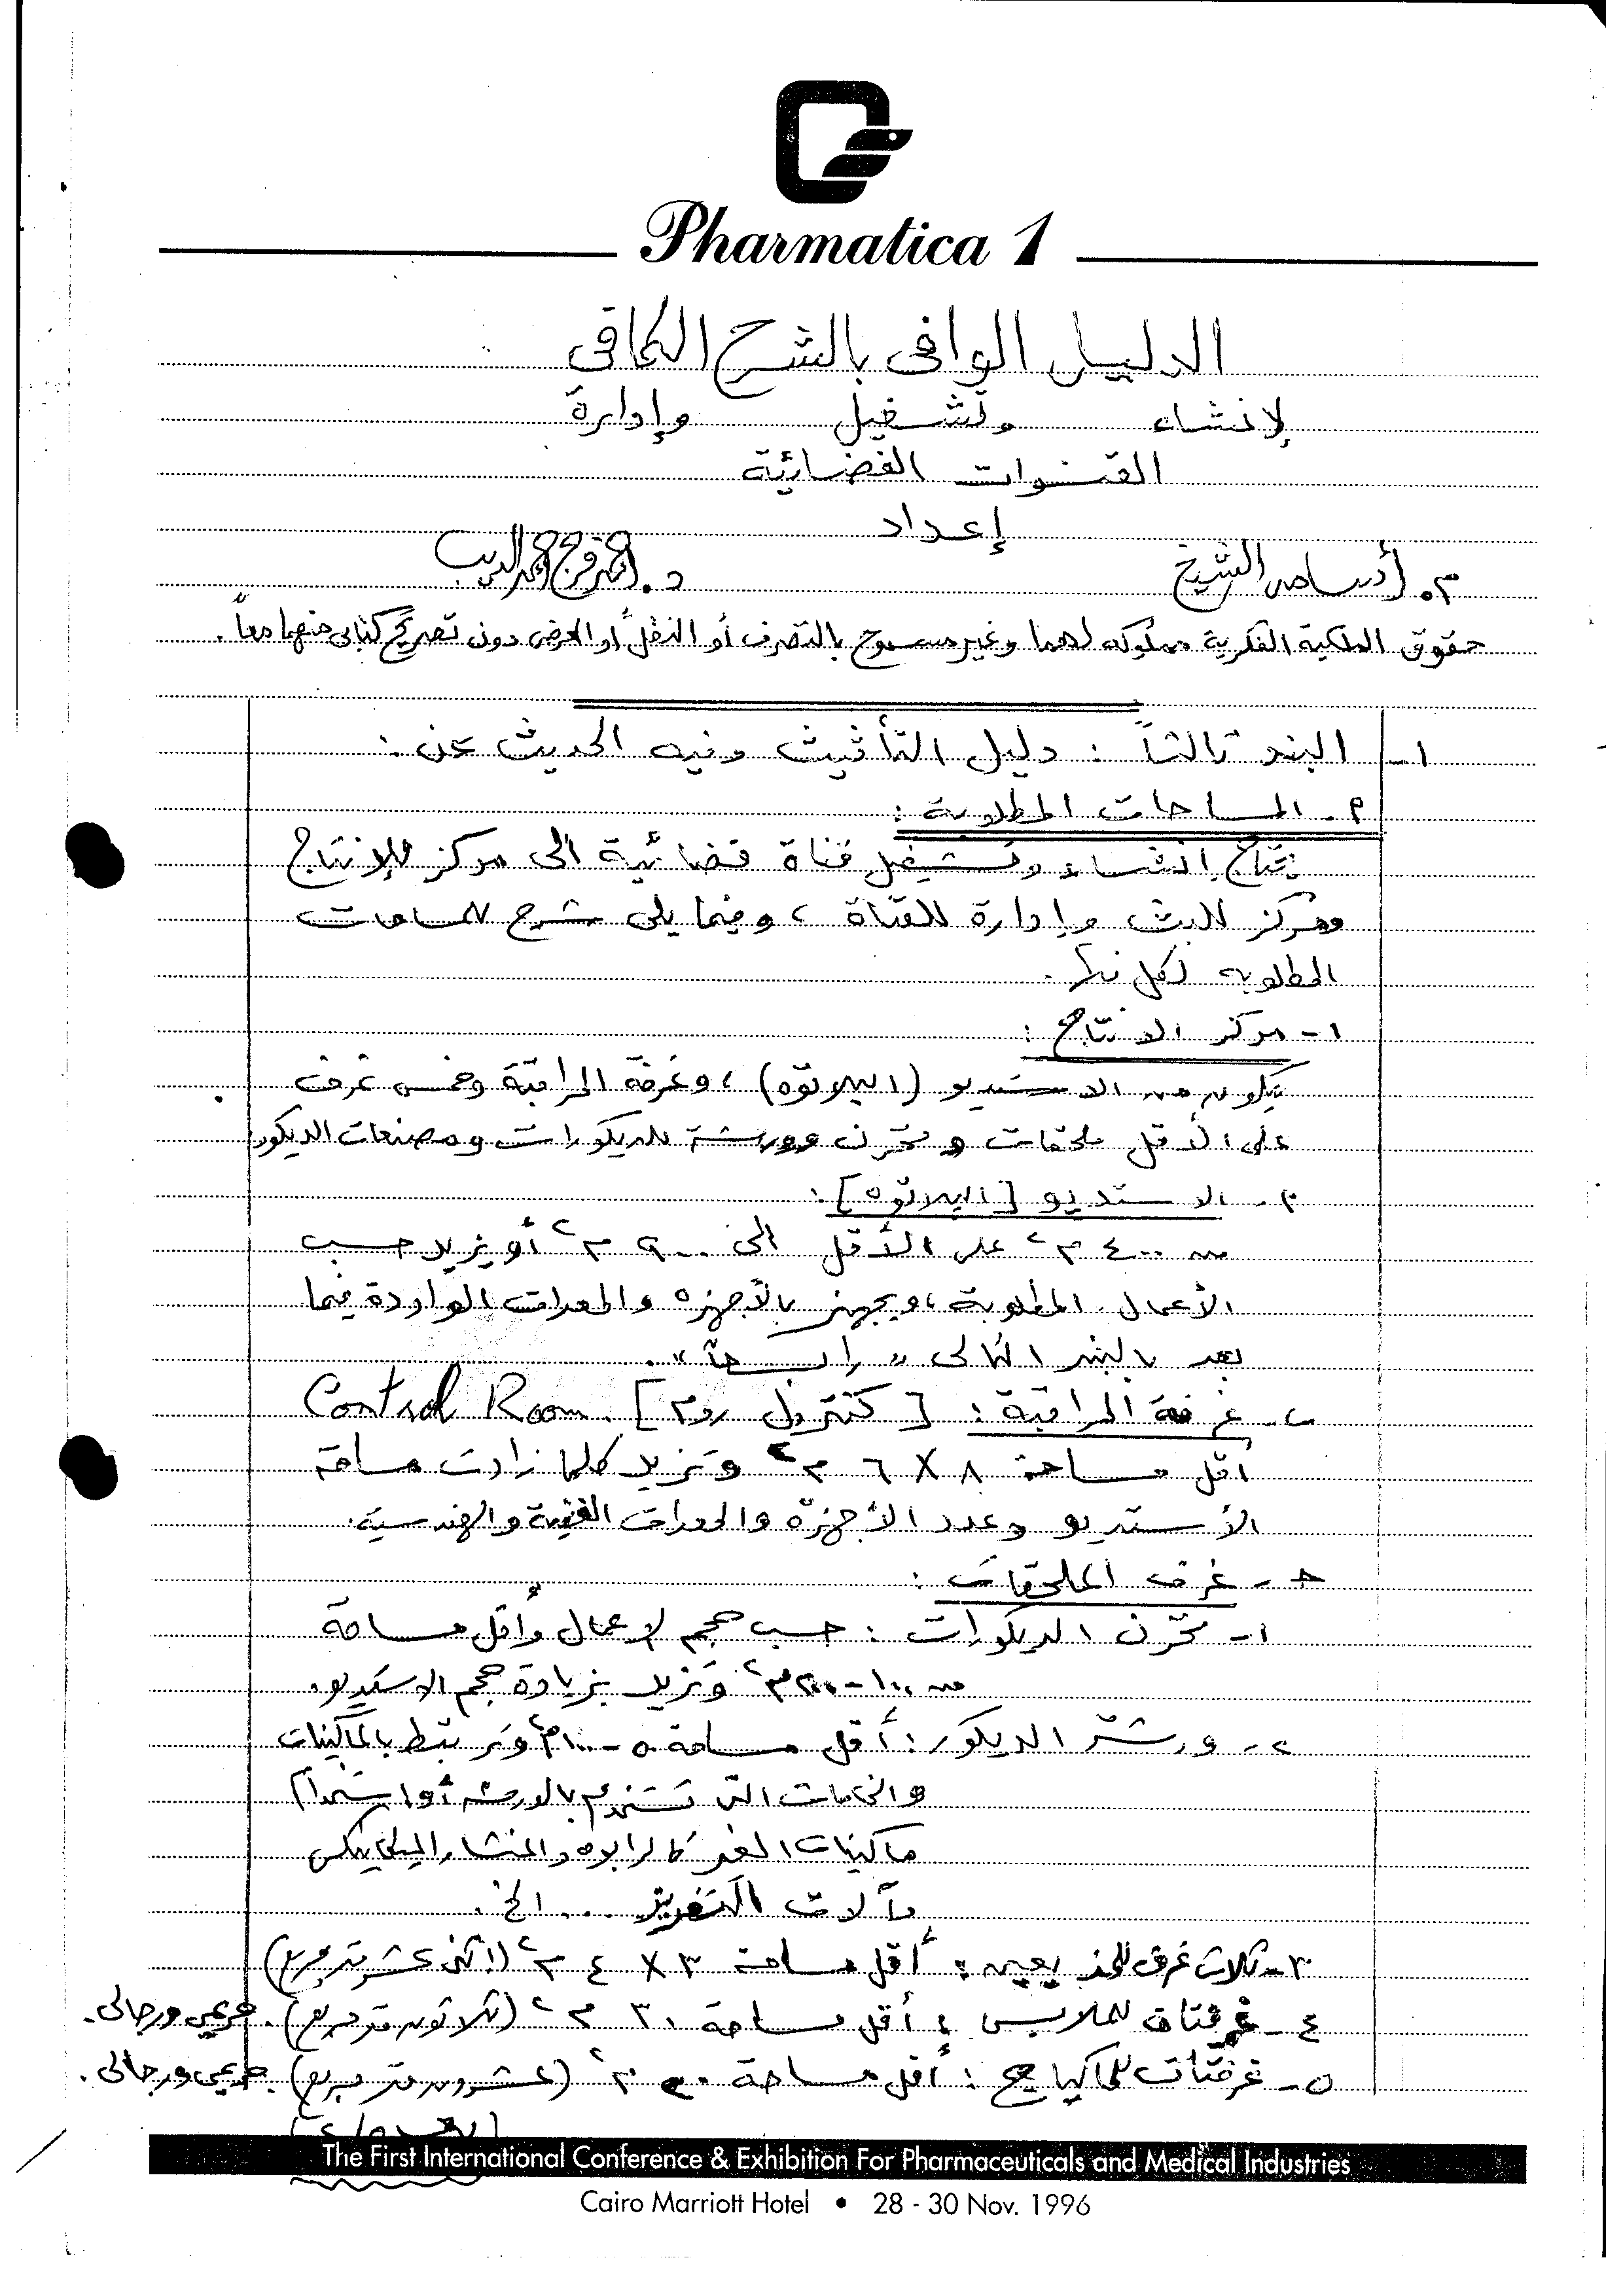 Pharmatica 1
الدليل الوافى بالشرح الكافى
لإنشاء وتشغيل وإدارة
القنوات الفضائية
إعداد
م. أسامه الشيخ د. أحمد فرج أحمد الديب
حقوق الملكية الفكرية مملوكه لهما وغير مسموح بالتصرف أو النقل أو العرض دون تصريح كتابى منهما معاً.
١- البند ثالثاً : دليل التأثيث وفيه الحديث عن :
م - المساحات المطلوبة :
يحتاج إنشاء وتشغيل قناة فضائية الى مركز للإنتاج
ومركز للبث وإدارة للقناة ، وفيما يلى شرح للمساحات
المطلوبه لكل نها.
١- مركز الانتاج :
يتكون من الاستديو (البلاتوه) ، وغرفة المراقبة وخمس غرف
على الأقل ملحقات ومخزن وورشة للديكورات ومصنعات الديكور
م - الاستديو [البلاتوه] :
من ٤٠٠ م٢ على الأقل الى ٩٠٠ م٢ أو يزيد حسب
الأعمال المطلوبة ، ويجهز بالأجهزه والمعدات الواردة فيما
بعد بالبند التالى "رابعاً".
ب - غرفة المراقبة : [كنترول روم] Control Room.
أقل مساحة ٨ X ٦ م٢ وتزيد كلما زادت مساحة
الأستديو وعدد الأجهزة والمعدات الفنية والهندسية.
ح - غرف الملحقات :
١- مخزن الديكورات : حسب حجم الأعمال وأقل مساحة
من ١٠٠ - ٢٠٠ م٢ وتزيد بزيادة حجم الاستديو.
٢- ورشة الديكور : أقل مساحة ٥٠ - ١٠٠ م٢ وترتبط بالماكينات
والخامات التى تستخدم بالورشه أو استخدام
ماكينات الغير كالرابوه والمنشار الميكانيكى
وآلات التفريز .... الخ.
٣- ثلاث غرف للمذيعين : أقل مساحة ٣ X ٤ م٢ (اثنى عشر متر مربع)
٤- غرفتان للملابس : أقل مساحة ٣٠ م٢ (ثلاثون متر مربع). حريمى ورجالى.
٥- غرفتان للماكياج : أقل مساحة ٢٠ م٢ (عشرون متر مربع). حريمى ورجالى.
The First International Conference & Exhibition For Pharmaceuticals and Medical Industries
Cairo Marriott Hotel • 28 - 30 Nov. 1996